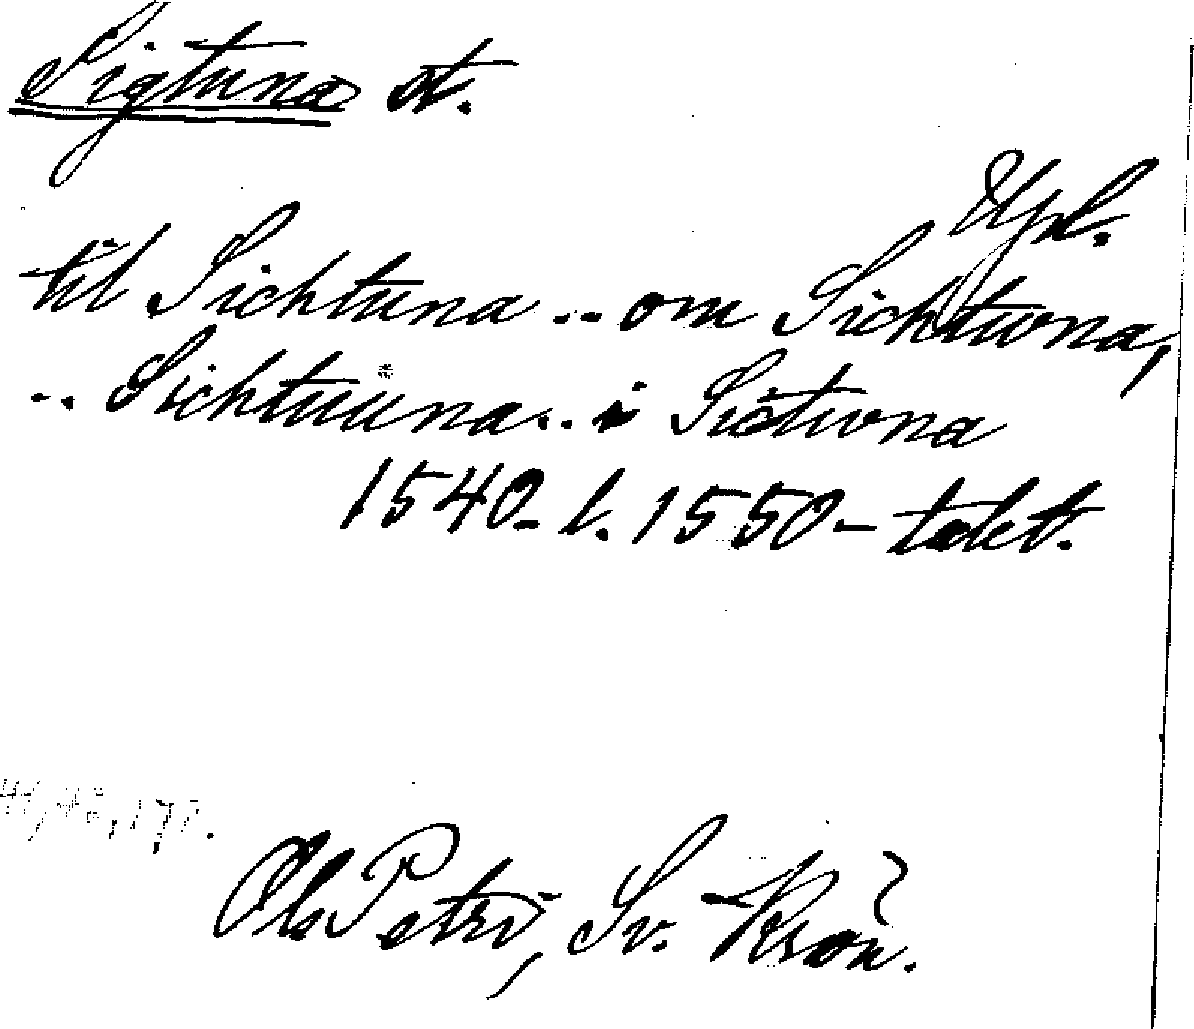 Sigtuna st.
Upl.
til Sichtuna .. om Sichtwna,
.. Sichtuna .. i Sictwna
1540- l. 1550-talet.
Ols Petri, Sv. Krön.